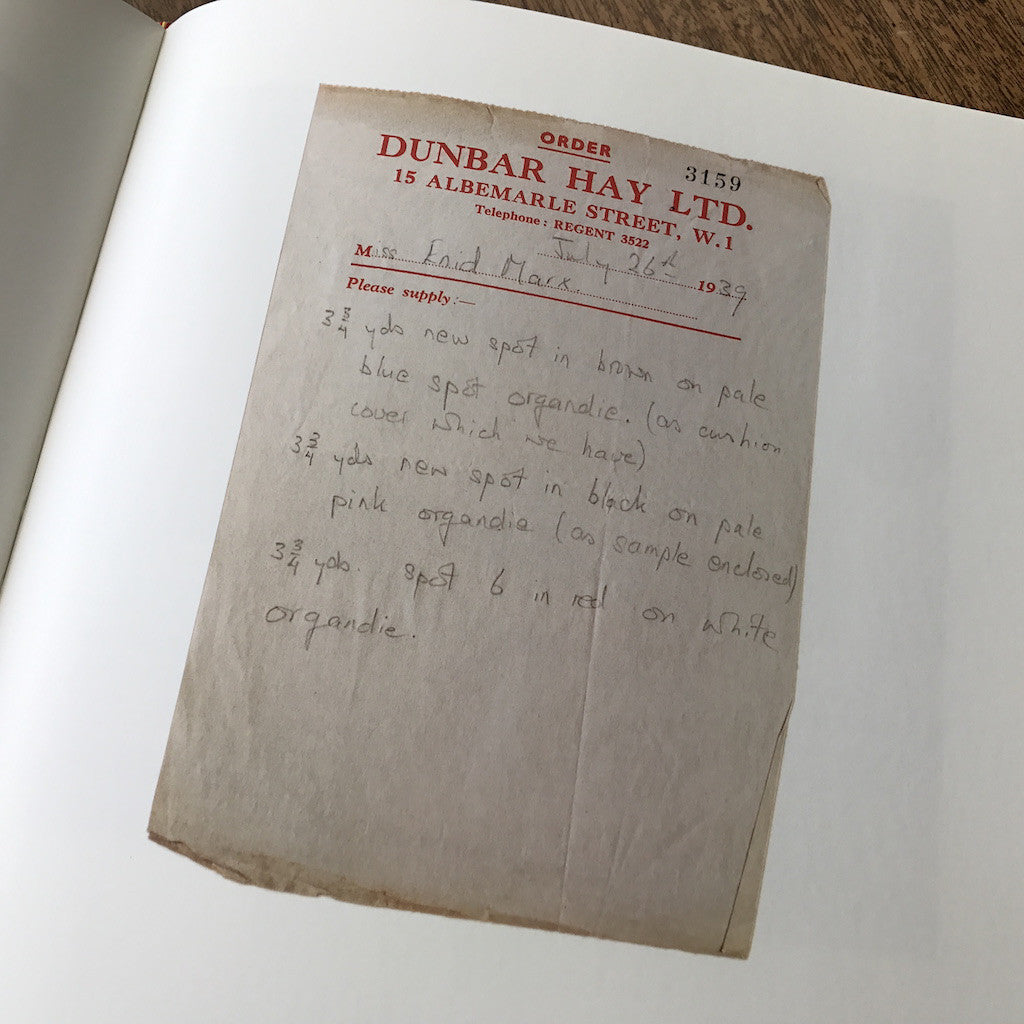 ORDER
3159
DUNBAR HAY LTD.
15 ALBEMARLE STREET, W.1
Telephone: REGENT 3522
July 26th 1939
Miss Enid Marx.
Please supply:—
3 3/4 yds new spot in brown on pale
blue spot organdie. (as cushion
cover which we have)
3 3/4 yds new spot in black on pale
pink organdie (as sample enclosed)
3 3/4 yds. spot 6 in red on white
organdie.